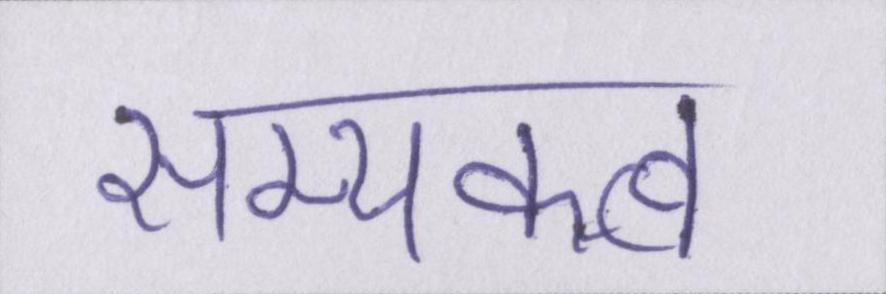 सम्यकत्व